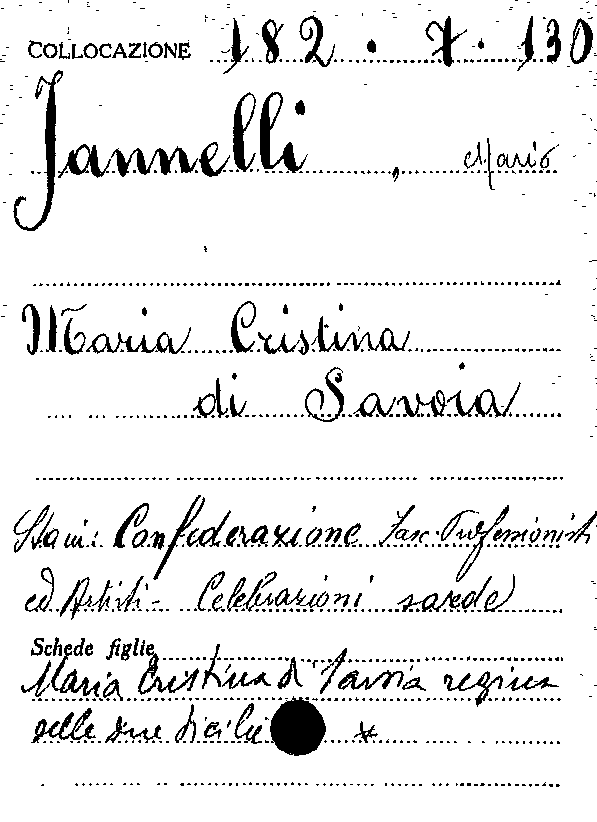 COLLOCAZIONE 182 . 7 . 130
Jannelli, Mario
Maria Cristina
di Savoia
Confederazione Fasc. Professionisti
ed Artisti - Celebrazioni sarde
Schede figlie
Maria Cristina di Savoia regina
delle due Sicilie *